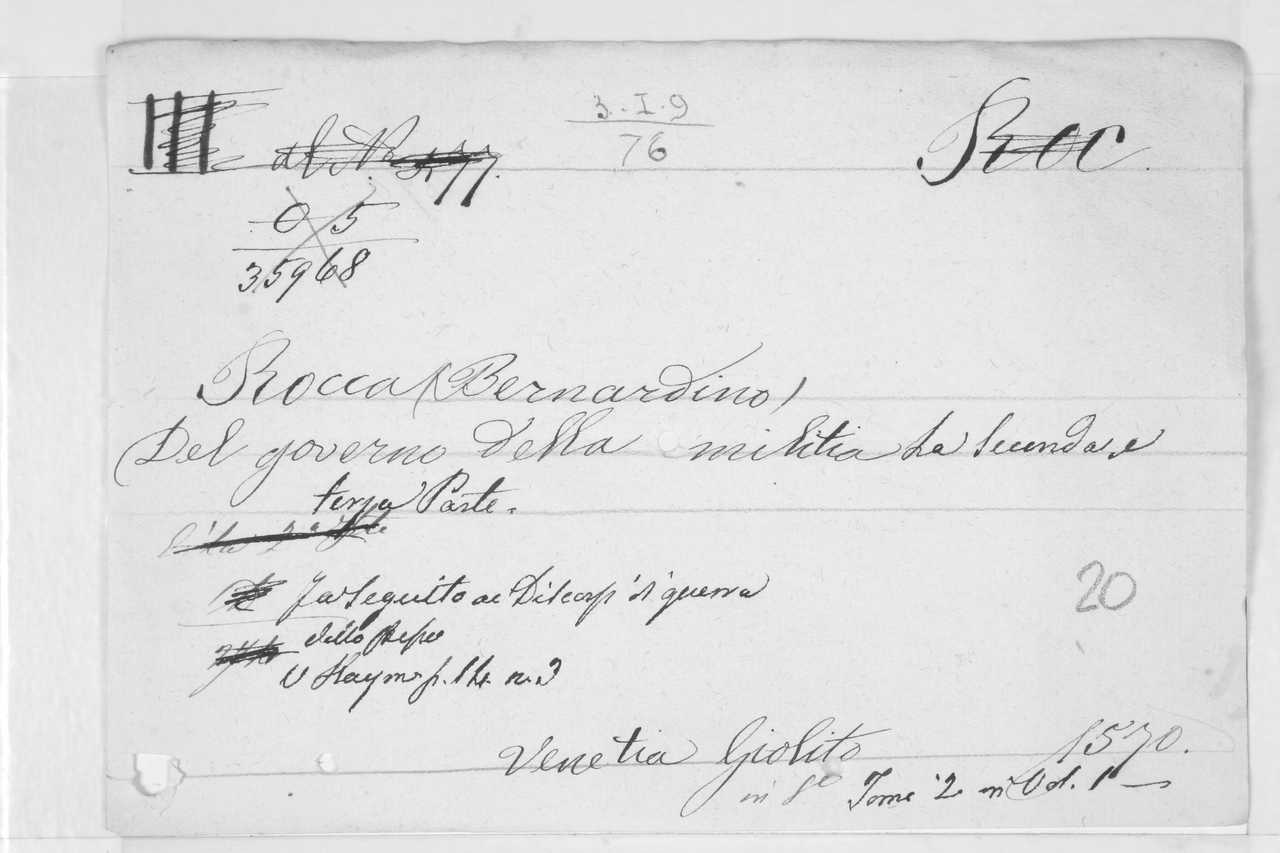 3.I.9
76
Roc
III
al N.
0 5
35968
Rocca (Bernardino)
Del governo della militia La Seconda e
terza Parte.
Fa Seguito ai Discorsi di guerra
dello stesso
V Haym p. 14. n. 3
20
Venetia Giolito 1570.
in 8º Tomi 2 in Vol. 1